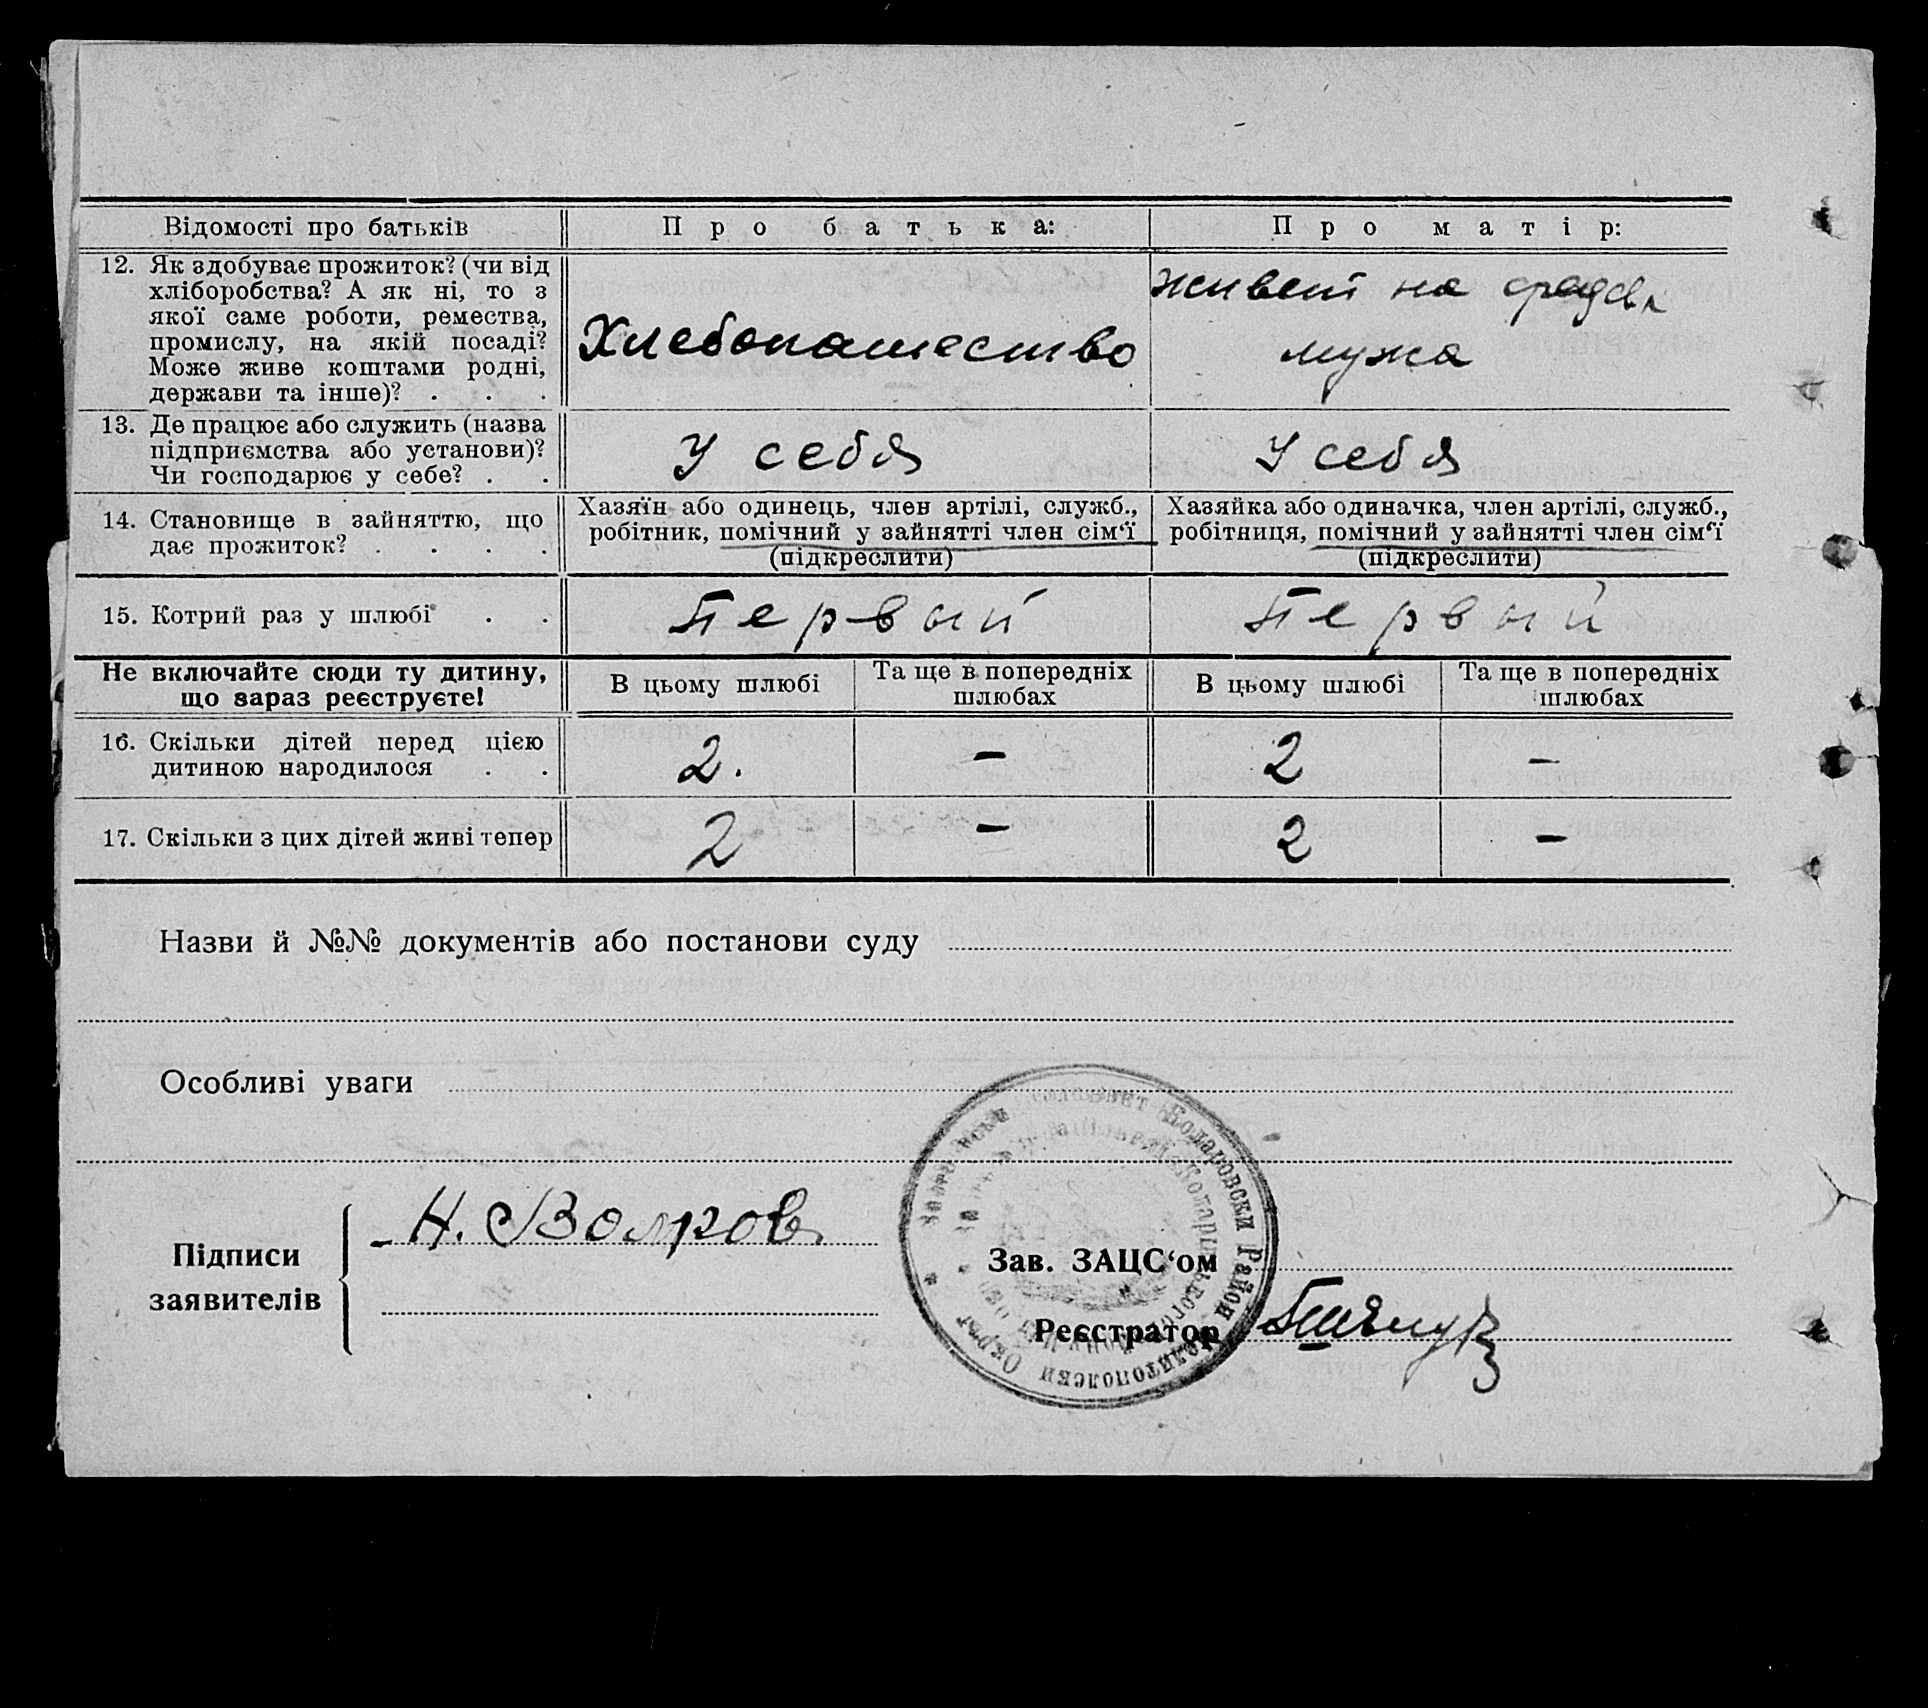 Відомості про батьків
Про батька:
Про матір:
12. Як здобуває прожиток? (чи від
хліборобства? А як ні, то з
якої саме роботи, ремества,
промислу, на якій посаді?
Може живе коштами родні,
держави та інше)? . . .
Хлебопашество
живет на
мужа
13. Де працює або служить (назва
підприємства або установи)?
Чи господарює у себе? . .
У себя
У себя
14. Становище в зайняттю, що
дає прожиток? . . . .
Хазяїн або одинець, член артілі, служб.,
робітник, помічний у зайнятті член сім‘ї
(підкреслити)
Хазяйка або одиначка, член артілі, служб.,
робітниця, помічний у зайнятті член сім‘ї
(підкреслити)
15. Котрий раз у шлюбі . .
Первый
Первый
Не включайте сюди ту дитину,
що зараз реєструєте!
В цьому шлюбі
Та ще в попередніх
шлюбах
В цьому шлюбі
Та ще в попередніх
шлюбах
16. Скільки дітей перед цією
дитиною народилося . .
2.
–
2
–
17. Скільки з цих дітей живі тепер
2
–
2
–
Назви й №№ документів або постанови суду
Особливі уваги
Підписи
заявителів
Н.
Зав. ЗАЦС‘ом
Реєстратор
Район
Мелитополски Окрог